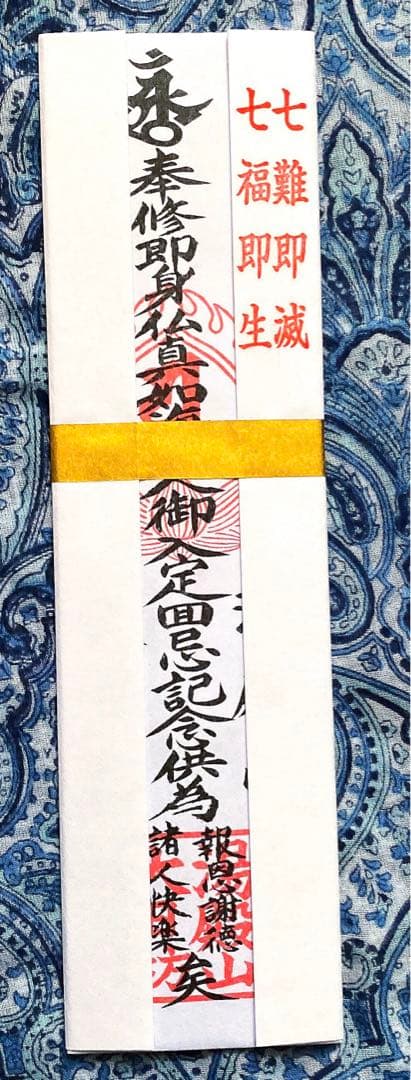 七難即滅
七福即生
奉修即身仏真如海
御入定回忌記念供為
報恩謝徳
諸人快楽
矣